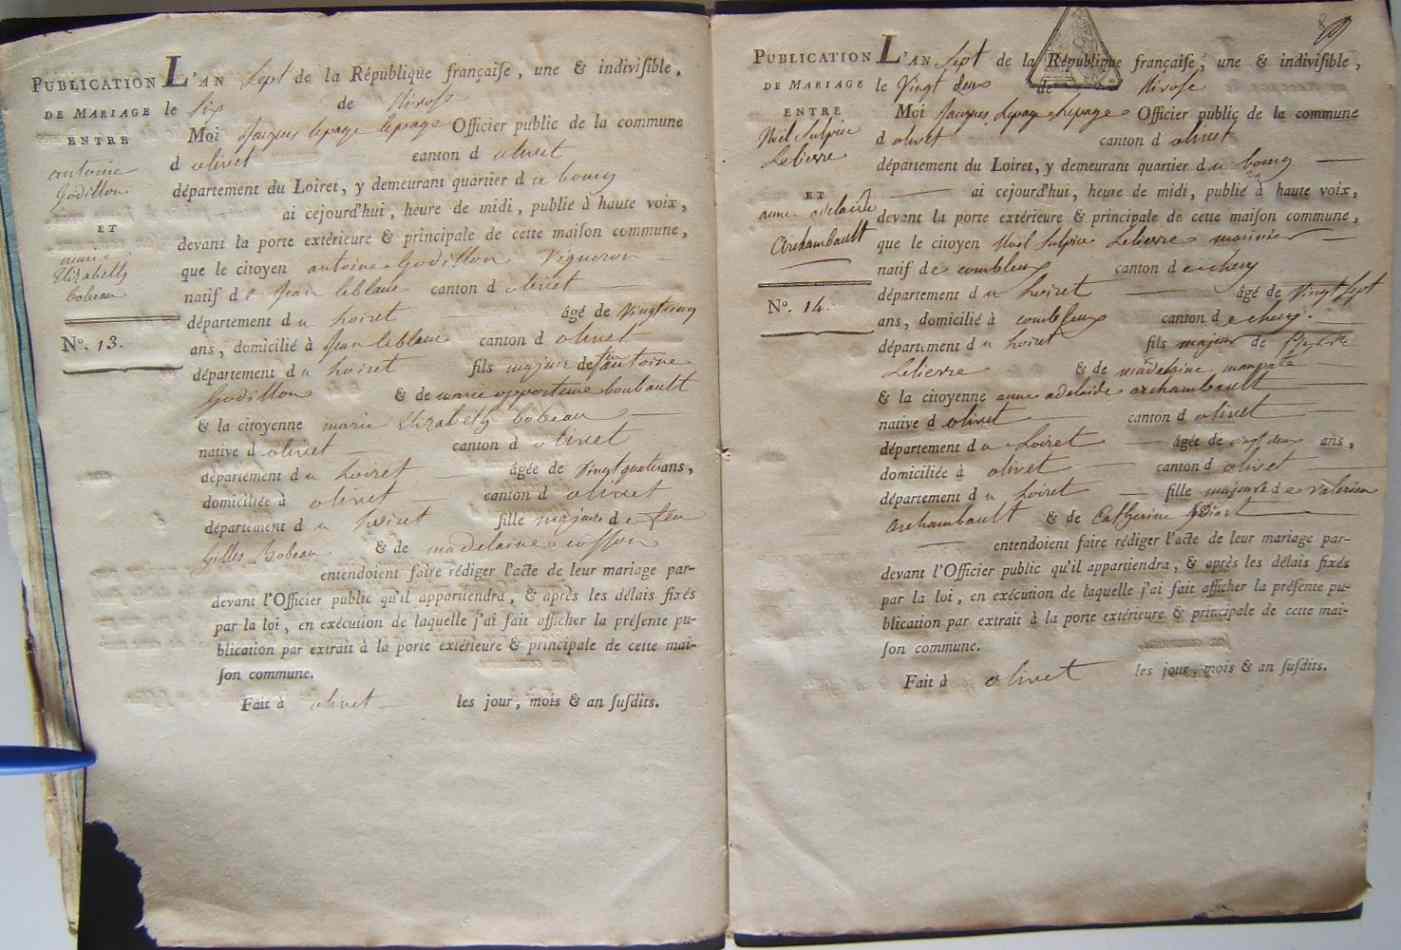 PUBLICATION
DE MARIAGE
ENTRE
antoine
Godillon
ET
marie
Elizabeth
bobeau
No. 13.
L'AN Sept de la République françaiſe, une & indiviſible,
le Six de Nivose
Moi Jacques lepage lepage Officier public de la commune
d olivet canton d olivet
département du Loiret, y demeurant quartier d u bourg
ai cejourd'hui, heure de midi, publié à haute voix,
devant la porte extérieure & principale de cette maiſon commune,
que le citoyen antoine Godillon Vigneron
natif d e Jean leblanc canton d olivet
département d u Loiret âgé de Vingt cinq
ans, domicilié à Jean leblanc canton d olivet
département d u Loiret fils majeur de feu antoine
Godillon & de marie boubault
& la citoyenne marie Elizabeth bobeau
native d olivet canton d olivet
département d u Loiret âgée de Vingt quatre ans,
domiciliée à olivet canton d olivet
département d u Loiret fille majeure d e feu
Gilles Bobeau & de madelaine cosson
entendoient faire rédiger l'acte de leur mariage par-
devant l'Officier public qu'il appartiendra, & après les délais fixés
par la loi, en exécution de laquelle j'ai fait afficher la préſente pu-
blication par extrait à la porte extérieure & principale de cette mai-
ſon commune.
Fait à olivet les jour, mois & an ſuſdits.
PUBLICATION
DE MARIAGE
ENTRE
Noël Sulpice
Lelievre
ET
anne adelaide
Archambault
No. 14.
L'AN Sept de la République françaiſe, une & indiviſible,
le Vingt deux de Nivose
Moi Jacques Lepage Lepage Officier public de la commune
d olivet canton d olivet
département du Loiret, y demeurant quartier d u bourg
ai cejourd'hui, heure de midi, publié à haute voix,
devant la porte extérieure & principale de cette maiſon commune,
que le citoyen Noël Sulpice Lelievre marinier
natif d e combleux canton d e checy
département d u Loiret âgé de Vingt Sept
ans, domicilié à combleux canton d e checy
département d u Loiret fils majeur de
Lelievre & de madelaine
& la citoyenne anne adelaide archambault
native d olivet canton d olivet
département d u Loiret âgée de vingt deux ans,
domiciliée à olivet canton d olivet
département d u Loiret fille majeure d e Valerien
Archambault & de Catherine
entendoient faire rédiger l'acte de leur mariage par-
devant l'Officier public qu'il appartiendra, & après les délais fixés
par la loi, en exécution de laquelle j'ai fait afficher la préſente pu-
blication par extrait à la porte extérieure & principale de cette mai-
ſon commune.
Fait à olivet les jour, mois & an ſuſdits.